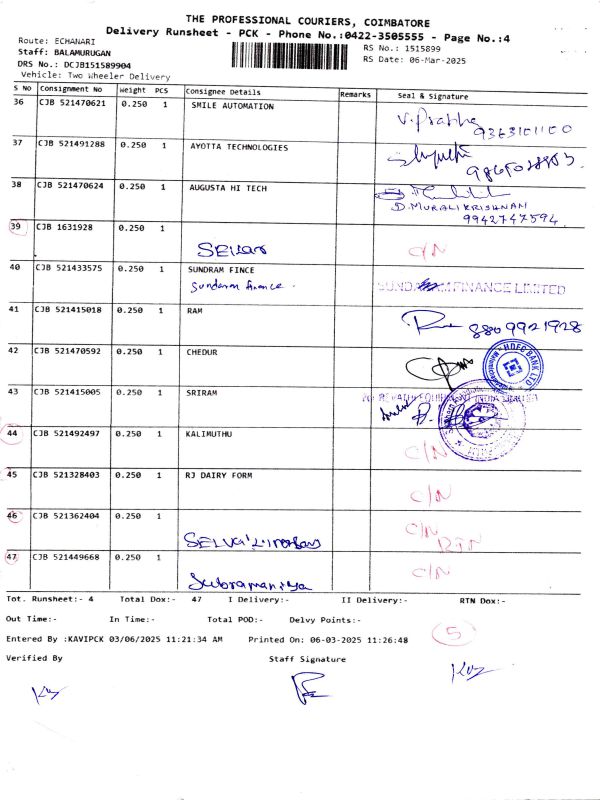 THE PROFESSIONAL COURIERS, COIMBATORE
Delivery Runsheet - PCK - Phone No.:0422-3505555 - Page No.:4
Route: ECHANARI
Staff: BALAMURUGAN
DRS No.: DCJB151589904
Vehicle: Two Wheeler Delivery
RS No.: 1515899
RS Date: 06-Mar-2025
S No Consignment No Weight PCS Consignee Details Remarks Seal & Signature
36 CJB 521470621 0.250 1 SMILE AUTOMATION
V. Prabha
9363101100
37 CJB 521491288 0.250 1 AYOTTA TECHNOLOGIES
38 CJB 521470624 0.250 1 AUGUSTA HI TECH
D. MURALIKRISHNAN
9942747594
39 CJB 1631928 0.250 1
C/N
40 CJB 521433575 0.250 1 SUNDRAM FINCE
Sundaram finance.
FINANCE LIMITED
41 CJB 521415018 0.250 1 RAM
8809921928
42 CJB 521470592 0.250 1 CHEDUR
HDFC BANK LTD
43 CJB 521415005 0.250 1 SRIRAM
REVATHI EQUIPMENT INDIA LIMITED
44 CJB 521492497 0.250 1 KALIMUTHU
C/N
45 CJB 521328403 0.250 1 RJ DAIRY FORM
C/N
46 CJB 521362404 0.250 1
C/N
RTN
47 CJB 521449668 0.250 1
Subramaniya
C/N
Tot. Runsheet:- 4 Total Dox:- 47 I Delivery:- II Delivery:- RTN Dox:-
Out Time:- In Time:- Total POD:- Delvy Points:-
5
Entered By :KAVIPCK 03/06/2025 11:21:34 AM Printed On: 06-03-2025 11:26:48
Verified By Staff Signature